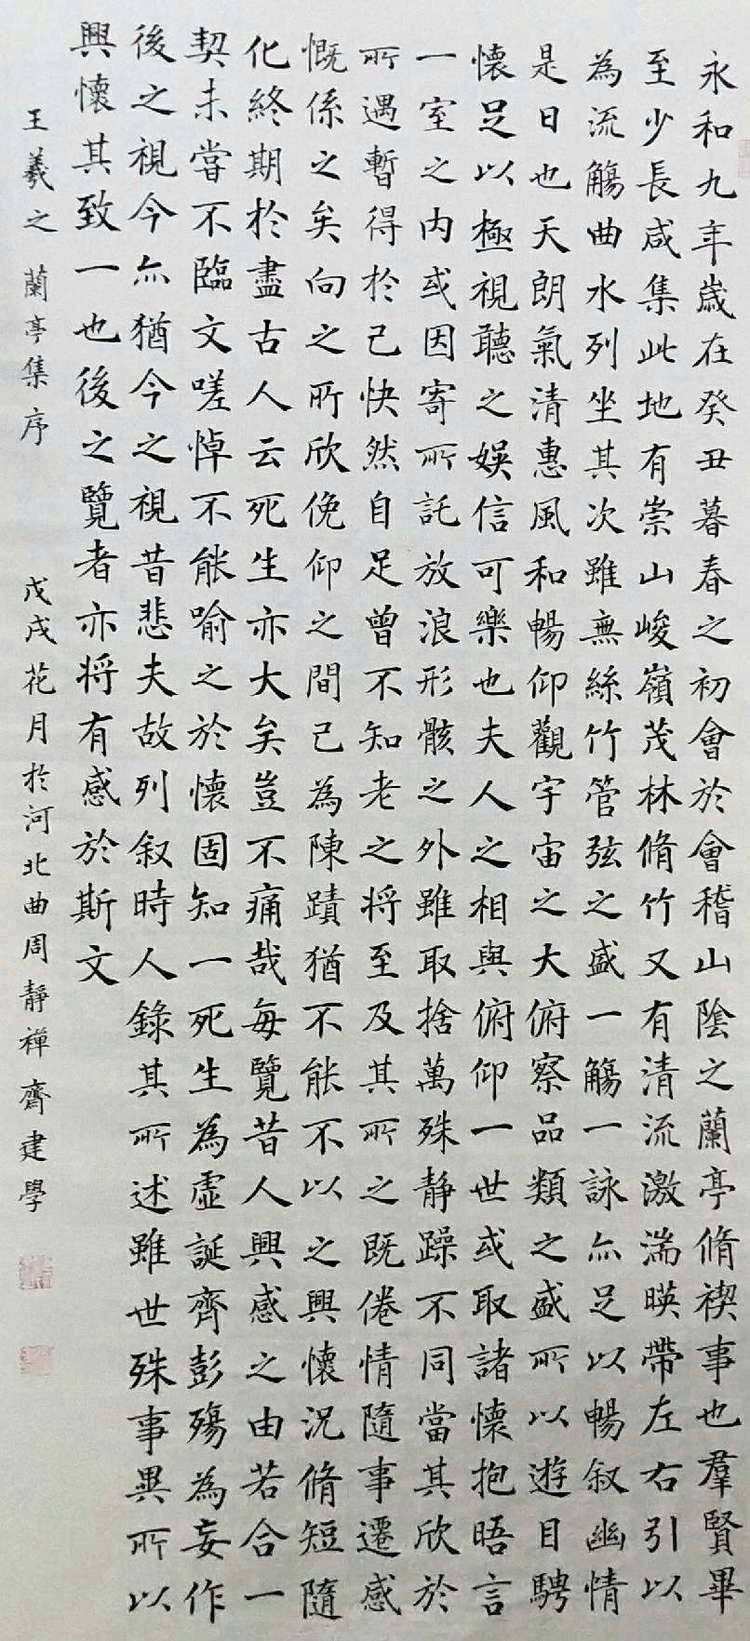 永和九年歲在癸丑暮春之初會於會稽山陰之蘭亭脩禊事也羣賢畢
至少長咸集此地有崇山峻嶺茂林脩竹又有清流激湍暎帶左右引以
為流觴曲水列坐其次雖無絲竹管弦之盛一觴一詠亦足以暢叙幽情
是日也天朗氣清惠風和暢仰觀宇宙之大俯察品類之盛所以遊目騁
懷足以極視聽之娛信可樂也夫人之相與俯仰一世或取諸懷抱晤言
一室之内或因寄所託放浪形骸之外雖取捨萬殊静躁不同當其欣於
所遇暫得於己快然自足曾不知老之将至及其所之既倦情隨事遷感
慨係之矣向之所欣俛仰之間已為陳蹟猶不能不以之興懷況脩短隨
化終期於盡古人云死生亦大矣豈不痛哉每覽昔人興感之由若合一
契未嘗不臨文嗟悼不能喻之於懷固知一死生為虛誕齊彭殤為妄作
後之視今亦猶今之視昔悲夫故列叙時人錄其所述雖世殊事異所以
興懷其致一也後之覽者亦将有感於斯文
王羲之 蘭亭集序 戊戌花月於河北曲周靜禪齋建學